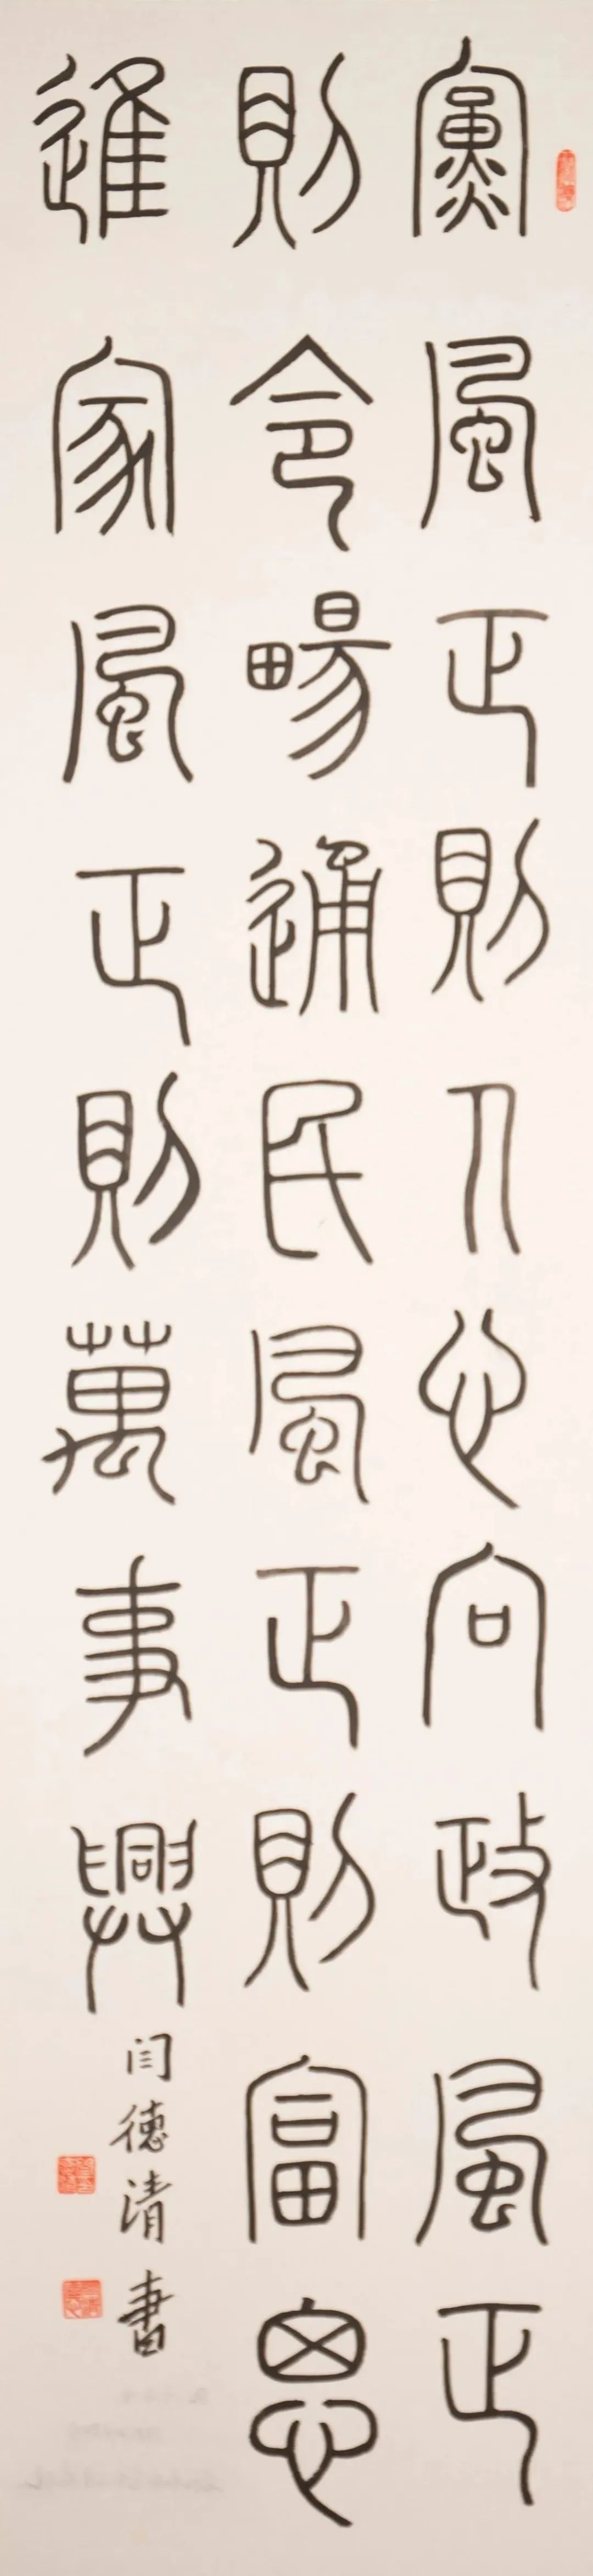 黨風正則人心向政風正
則令暢通民風正則富思
進家風正則萬事興
闫德清書